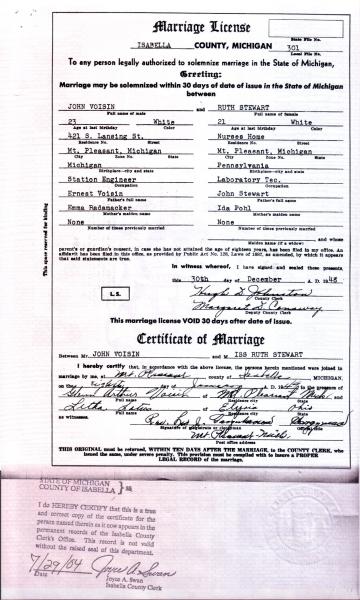 Marriage License
State File No.
ISABELLA COUNTY, MICHIGAN 301
Local File No.
To any person legally authorized to solemnize marriage in the State of Michigan,
Greeting:
Marriage may be solemnized within 30 days of date of issue in the State of Michigan
between
JOHN VOISIN and RUTH STEWART
Full name of male Full name of female
23 White 21 White
Age at last birthday Color Age at last birthday Color
421 S. Lansing St. Nurses Home
Residence No. Street Residence No. Street
Mt. Pleasant, Michigan Mt. Pleasant, Michigan
City Zone No. State City Zone No. State
Michigan Pennsylvania
Birthplace—city and state Birthplace—city and state
Station Engineer Laboratory Tec.
Occupation Occupation
Ernest Voisin John Stewart
Father's full name Father's full name
Emma Radamacker Ida Pohl
Mother's maiden name Mother's maiden name
None None
Number of times previously married Number of times previously married
and whose
Maiden name (if a widow)
parent's or guardian's consent, in case she has not attained the age of eighteen years, has been filed in my office. An
affidavit has been filed in this office, as provided by Public Act No. 128, Laws of 1887, as amended, by which it appears that
said statements are true.
In witness whereof, I have signed and sealed these presents
this 30th day of December A. D. 1948
L.S.
County Clerk
Deputy Clerk
This marriage license VOID 30 days after date of issue.
Certificate of Marriage
Between Mr. JOHN VOISIN and M ISS RUTH STEWART
I hereby certify that, in accordance with the above license, the persons herein mentioned were joined in
marriage by me, at Mt. Pleasant county of Isabella MICHIGAN,
on the eighth day of January A. D. in the presence of
Voisin of Mt. Pleasant Mich.
Full name Residence City State
of Elyria Ohio
Full name Residence City State
as witnesses.
Signature of magistrate or clergyman Official title
Mt Pleasant Mich.
Post office address
THIS ORIGINAL must be RETURNED, WITHIN TEN DAYS AFTER THE MARRIAGE, to the COUNTY CLERK, who
issued the same, under severe penalty. This provision must be complied with to insure a PROPER
LEGAL RECORD of the marriage.
This space reserved for binding
STATE OF MICHIGAN
COUNTY OF ISABELLA } ss
I do HEREBY CERTIFY that this is a true
and correct copy of the certificate for the
person named therein as it now appears in the
permanent records of the Isabella County
Clerk's Office. This record is not valid
without the raised seal of this department.
7/29/04 Joyce A Swan
Date Joyce A. Swan
Isabella County Clerk